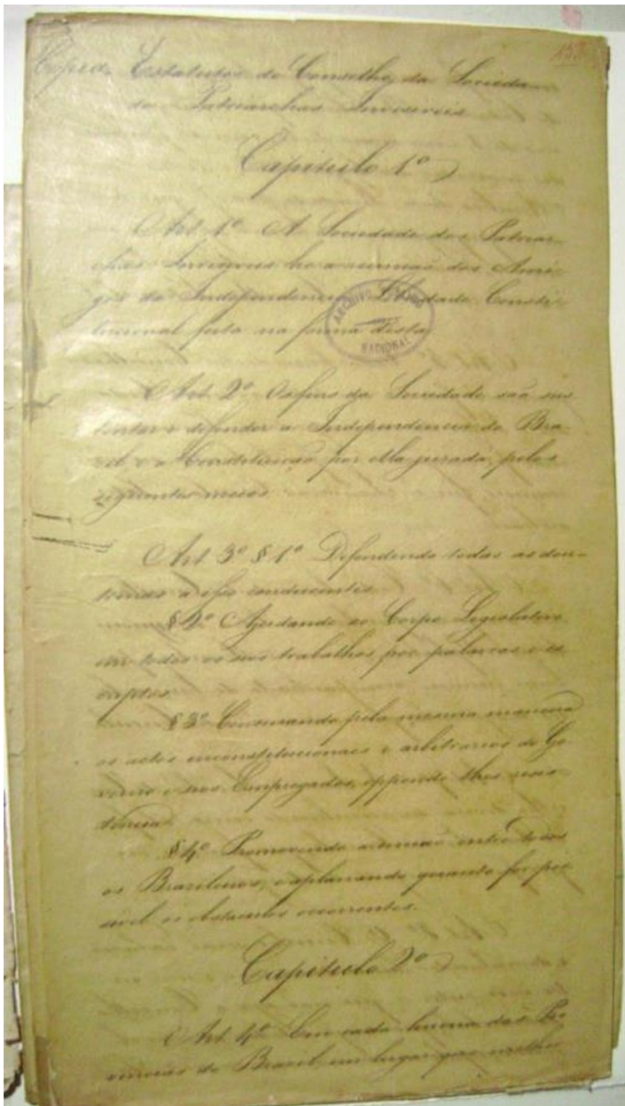 Copia dos Estatutos do Conselho da Socieda-
de Patriarchas Invisiveis
153
Capitulo 1º
Art. 1º A Sociedade dos Patriar-
chas Invisiveis he a reunião dos Ami-
gos da Independencia e Liberdade Consti-
tucional feita na forma desta
ARCHIVO PUBLICO
NACIONAL
Art. 2º Os fins da Sociedade são sus
tentar e defender a Independencia do Bra-
sil e a Constituição por ella jurada, pelos
seguintes meios
Art 3º § 1º Defendendo todas as dou-
trinas a esse conducentes.
§ 2º Ajudando ao Corpo Legislativo
em todos os seus trabalhos, por palavras e es
criptos.
§ 3º Censurando pela mesma maneira
os actos inconstitucionaes e arbitrarios do Go
verno e seus Empregados, oppondo-lhes resis-
tencia.
§ 4º Promovendo a união entre todos
os Brazileiros, e aplanando quanto for pos
sivel os obstaculos occorrentes.
Capitulo 2º
Art. 4º Em cada huma das Pro
vincias do Brasil em lugar que melhor